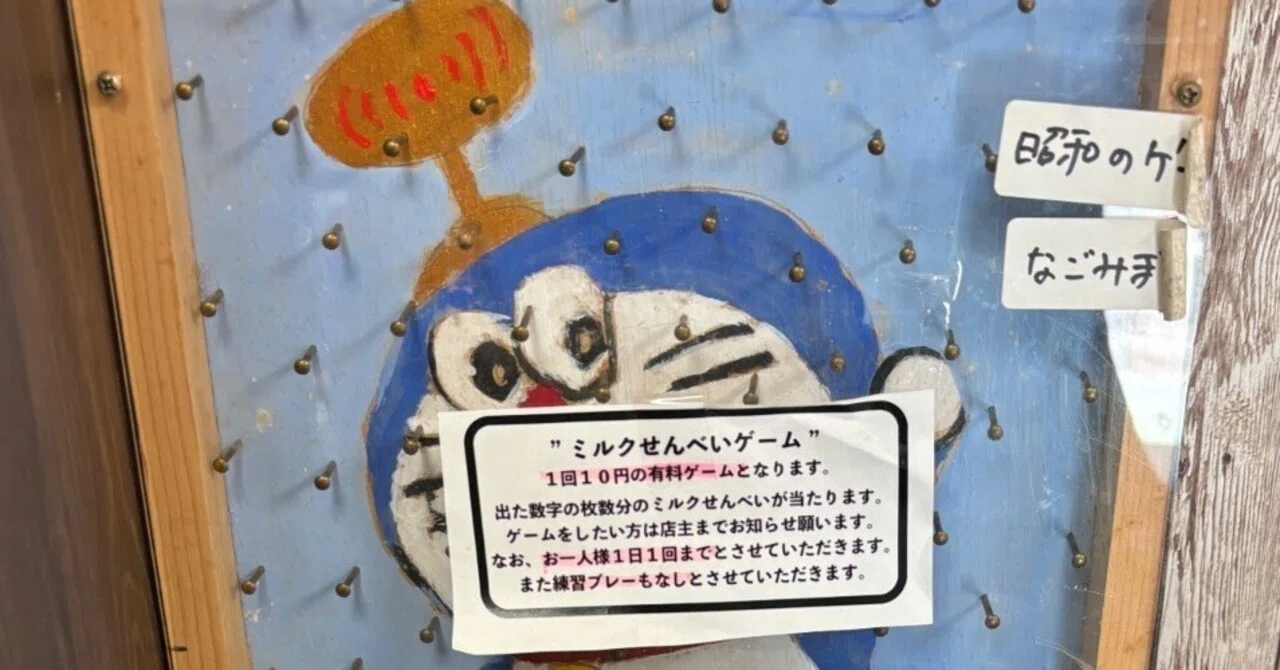 昭和のゲ
なごみ
”ミルクせんべいゲーム”
1回10円の有料ゲームとなります。
出た数字の枚数分のミルクせんべいが当たります。
ゲームをしたい方は店主までお知らせ願います。
なお、お一人様1日1回までとさせていただきます。
また練習プレーもなしとさせていただきます。